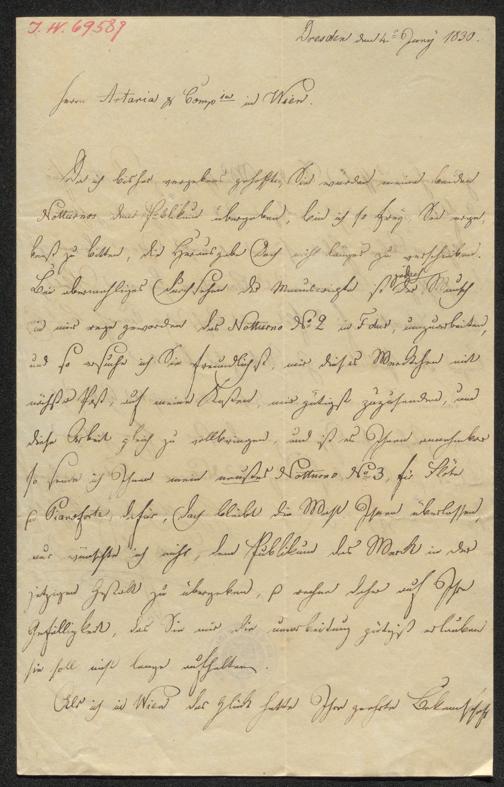 J. N. 69589
Dresden den 4n Juny 1830.
Herrn Artaria & Compie in Wien.
Da ich bisher vergebens gehofft, Sie würden meine beiden
Notturnos dem Publikum übergeben, bin ich so frey, Sie erge
benst zu bitten, die Herausgabe doch nicht länger zu verschieben.
Bei abermahligem Durchsehen des Manuscripts ist der Wunsch
in mir rege geworden das Notturno No 2 in F dur, umzuarbeiten,
und so ersuche ich Sie freundlichst, mir dieses Werkchen mit
nächster Post, auf meine Kosten, mir gütigst zuzusenden, um
diese Arbeit gleich zu vollbringen, und ist es Ihnen annehmbar
so sende ich Ihnen mein neustes Notturno No 3, für Flöte
u Pianoforte dafür, doch bleibt die Wahl Ihnen überlassen,
nur wünschte ich nicht, dem Publikum das Werk in der
jetzigen Gestalt zu übergeben, u rechne daher auf Ihre
Gefälligkeit, das Sie mir die umarbeitung gütigst erlauben
sie soll nicht lange aufhalten.
Als ich in Wien das Glück hatte Ihre geehrte Bekanntschaft